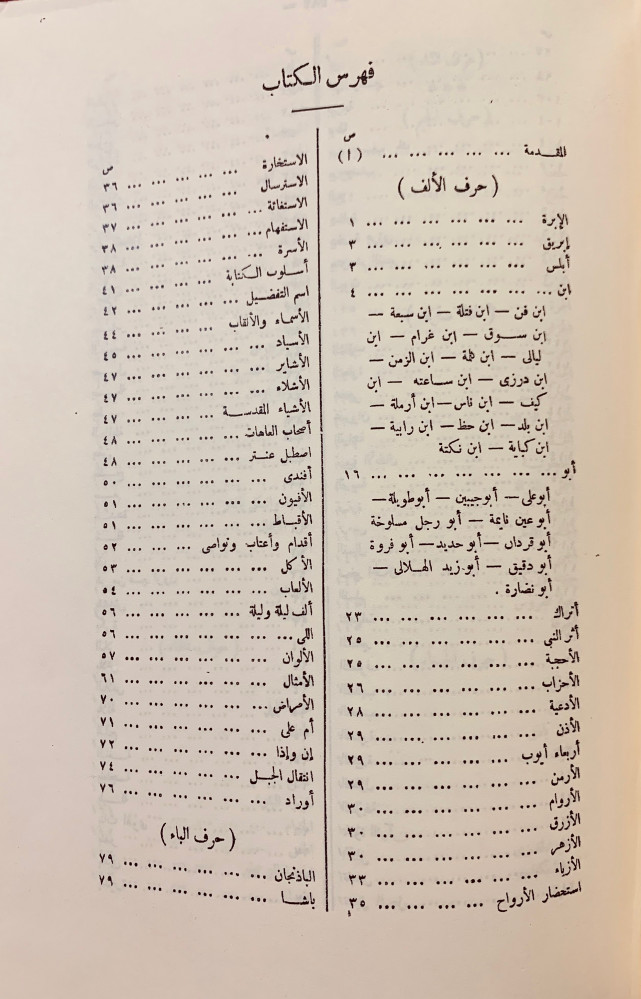 فهرس الكتاب
ص
المقدمة ... ... ... ... ... (ا)
( حرف الألف )
الإبرة ... ... ... ... ... ... ١
إبريق ... ... ... ... ... ... ٣
أبلس ... ... ... ... ... ... ٣
ابن ... ... ... ... ... ... ... ٤
ابن فن — ابن فتلة — ابن سبعة —
ابن سوق — ابن غرام — ابن
ليالى — ابن نمة — ابن الزمن —
ابن درزى — ابن ساعته — ابن
كيف — ابن ناس — ابن أرملة —
ابن بلد — ابن حظ — ابن رابية —
ابن كباية — ابن نكتة
أبو ... ... ... ... ... ... ... ١٦
أبوعلى — أبوجيبين — أبوطويلة —
أبو عين نايمة — أبو رجل مسلوخة
أبو قردان — أبو حديد — أبو فروة
أبو دقيق — أبو زيد الهلالى —
أبو نضارة .
أتراك ... ... ... ... ... ... ٢٣
أثر النبى ... ... ... ... ... ٢٥
الأحجبة ... ... ... ... ... ... ٢٥
الأحزاب ... ... ... ... ... ... ٢٦
الأدعية ... ... ... ... ... ... ٢٨
الأذن ... ... ... ... ... ... ٢٩
أربعاء أيوب ... ... ... ... ... ٢٩
الأرمن ... ... ... ... ... ... ٢٩
الأروام ... ... ... ... ... ... ٣٠
الأزرق ... ... ... ... ... ... ٣٠
الأزهر ... ... ... ... ... ... ٣٠
الأزياء ... ... ... ... ... ... ٣٣
استحضار الأرواح ... ... ... ... ٣٥
ص
الاستخارة ... ... ... ... ... ٣٦
الاسترسال ... ... ... ... ... ٣٦
الاستغاثة ... ... ... ... ... ... ٣٧
الاستفهام ... ... ... ... ... ... ٣٨
الأسرة ... ... ... ... ... ... ٣٨
أسلوب الكتابة ... ... ... ... ٤١
اسم التفضيل ... ... ... ... ... ٤٢
الأسماء والألقاب ... ... ... ... ٤٤
الأسياد ... ... ... ... ... ... ٤٥
الأشاير ... ... ... ... ... ... ٤٧
الأشلاء ... ... ... ... ... ... ٤٧
الأشياء المقدسة ... ... ... ... ... ٤٧
أصحاب العاهات ... ... ... ... ... ٤٨
اصطبل عنتر ... ... ... ... ... ٤٨
أفندى ... ... ... ... ... ... ٥٠
الأفيون ... ... ... ... ... ... ٥١
الأقباط ... ... ... ... ... ... ٥١
أقدام وأعتاب ونواصى ... ... ... ٥٢
الأكل ... ... ... ... ... ... ٥٣
الألعاب ... ... ... ... ... ... ٥٤
ألف ليلة وليلة ... ... ... ... ... ٥٦
اللى ... ... ... ... ... ... ... ٥٦
الألوان ... ... ... ... ... ... ٥٧
الأمثال ... ... ... ... ... ... ٦١
الأمراض ... ... ... ... ... ... ٧٠
أم على ... ... ... ... ... ... ٧١
إن وإذا ... ... ... ... ... ... ٧٢
انتقال الجبل ... ... ... ... ... ٧٤
أوراد ... ... ... ... ... ... ٧٦
( حرف الباء )
الباذنجان ... ... ... ... ... ... ٧٩
باشا ... ... ... ... ... ... ... ٧٩